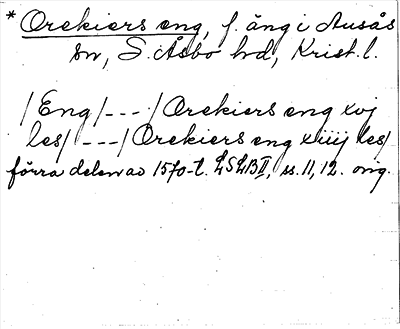 * Orekiers eng, f. äng i Ausås
sn, S. Åsbo hd, Krist. l.
/Eng/---/Orekiers eng xvj
les/---/Orekiers eng xiiij les/
förra delen av 1570-t. LSLBII, ss. 11, 12. orig.